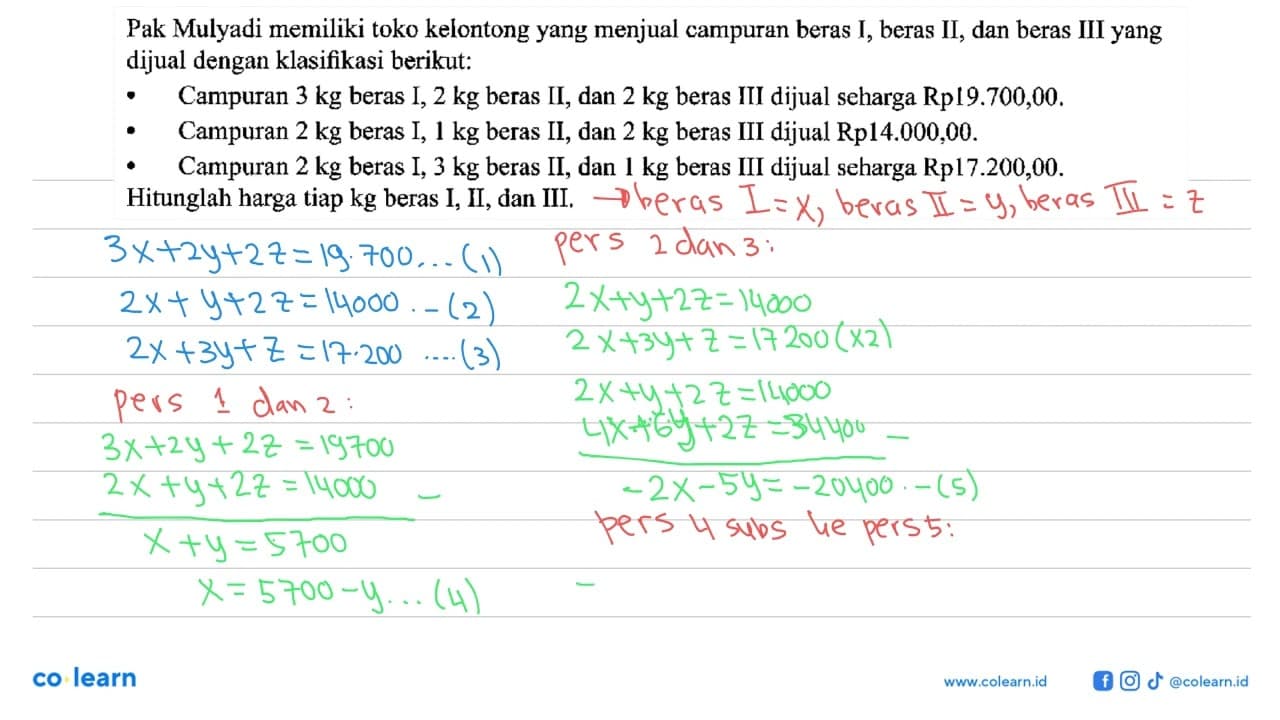 Pak Mulyadi memiliki toko kelontong yang menjual campuran beras I, beras II, dan beras III yang
dijual dengan klasifikasi berikut:
• Campuran 3 kg beras I, 2 kg beras II, dan 2 kg beras III dijual seharga Rp19.700,00.
• Campuran 2 kg beras I, 1 kg beras II, dan 2 kg beras III dijual Rp14.000,00.
• Campuran 2 kg beras I, 3 kg beras II, dan 1 kg beras III dijual seharga Rp17.200,00.
Hitunglah harga tiap kg beras I, II, dan III. → beras I = x, beras II = y, beras III = z
3x+2y+2z=19.700...(1)
2x+y+2z=14000..-(2)
2x+3y+z=17.200....(3)
pers 1 dan 2:
3x+2y+2z=19700
2x+y+2z=14000 -
x+y=5700
x=5700-y...(4)
pers 2 dan 3:
2x+y+2z=14000
2x+3y+z=17200(x2)
2x+y+2z=14000
4x+6y+2z=34400 -
-2x-5y=-20400.-(5)
pers 4 subs ke pers 5:
-
co learn
www.colearn.id
@colearn.id